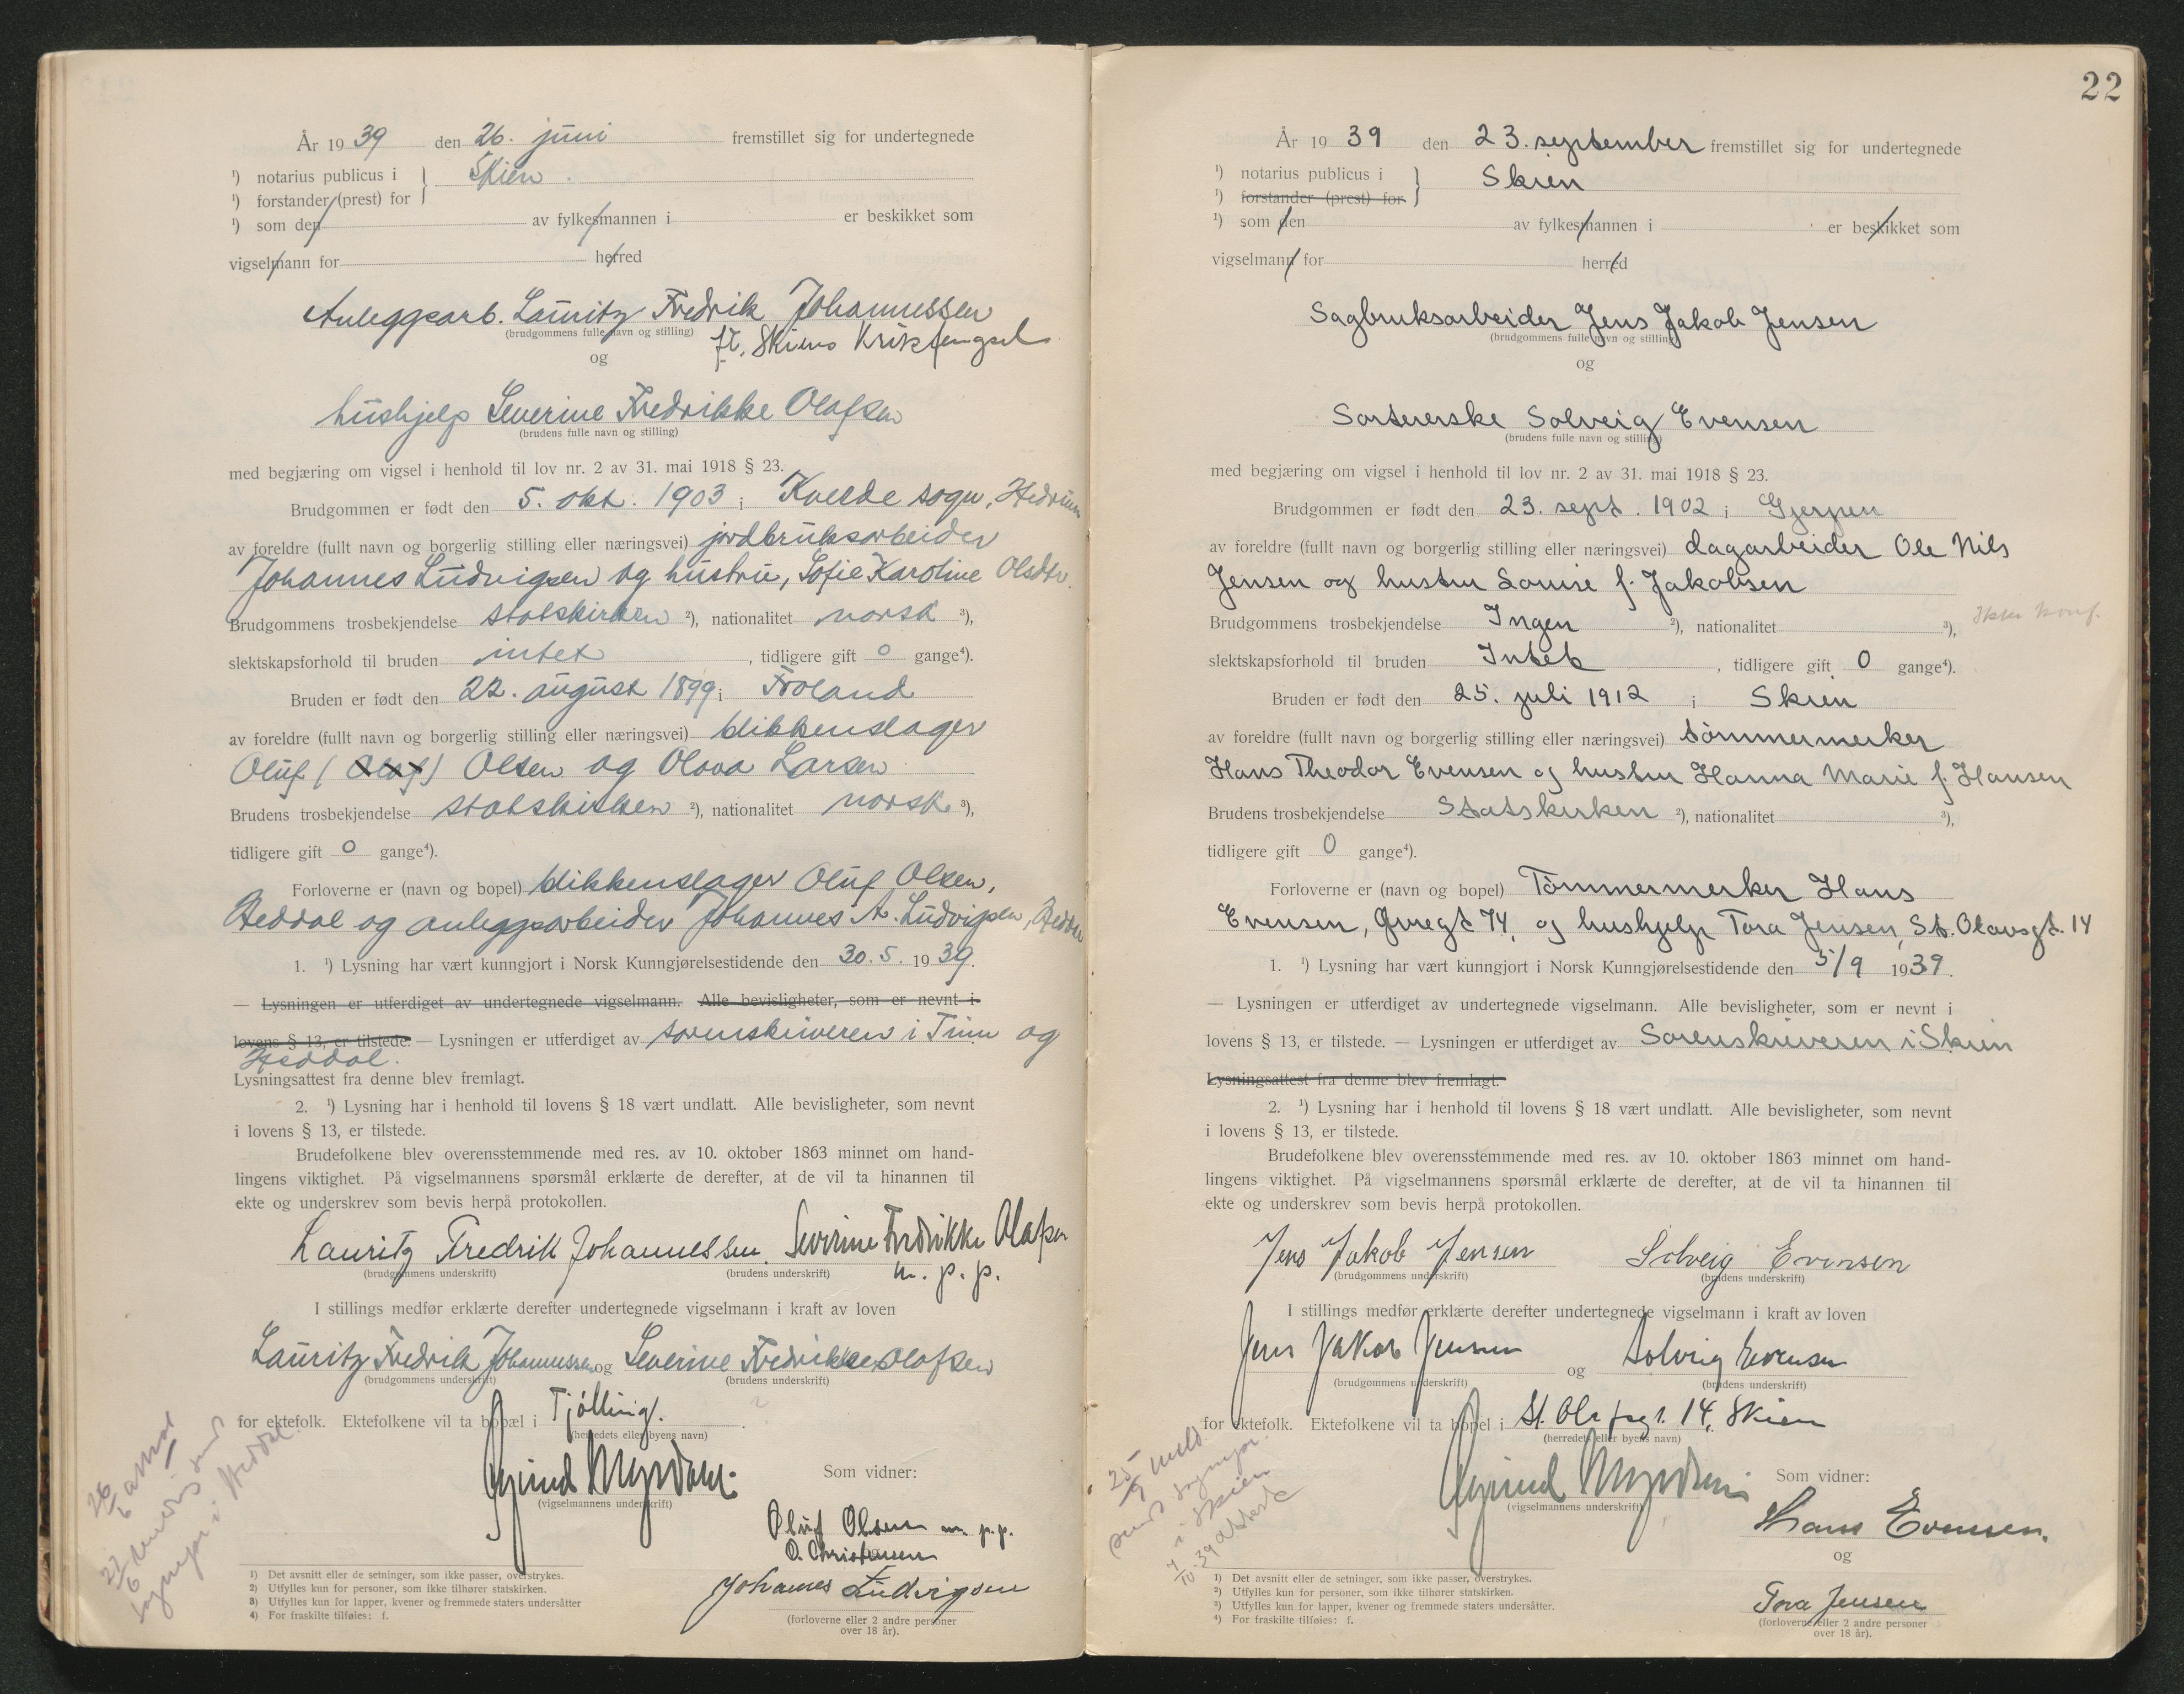 År 1939 den 26. juni fremstillet sig for undertegnede
¹) notarius publicus i } Skien
¹) forstander (prest) for
¹) som den av fylkesmannen i er beskikket som
vigselmann for herred
Anleggsarb. Lauritz Fredrik Johannessen
(brudgommens fulle navn og stilling)
ft. Skiens Kriksfengsel
og
hushjelp Severine Fredrikke Olafsen
(brudens fulle navn og stilling)
med begjæring om vigsel i henhold til lov nr. 2 av 31. mai 1918 § 23.
Brudgommen er født den 5. okt. 1903 i Kvelde sogn, Hedrum
av foreldre (fullt navn og borgerlig stilling eller næringsvei) jordbruksarbeider
Johannes Ludvigsen og hustru, Sofie Karoline Olsdtr.
Brudgommens trosbekjendelse statskirken ²), nationalitet norsk ³),
slektskapsforhold til bruden intet , tidligere gift 0 gange⁴).
Bruden er født den 22. august 1899 i Froland
av foreldre (fullt navn og borgerlig stilling eller næringsvei) blikkenslager
Oluf (Olaf) Olsen og Olava Larsen
Brudens trosbekjendelse statskirken ²), nationalitet norsk ³),
tidligere gift 0 gange⁴).
Forloverne er (navn og bopel) blikkenslager Oluf Olsen,
Heddal og anleggsarbeider Johannes A. Ludvigsen, Heddal
1. ¹) Lysning har vært kunngjort i Norsk Kunngjørelsestidende den 30. 5. 1939.
— Lysningen er utferdiget av undertegnede vigselmann. Alle bevisligheter, som er nevnt i
lovens § 13, er tilstede. — Lysningen er utferdiget av sorenskriveren i Tinn og
Heddal.
Lysningsattest fra denne blev fremlagt.
2. ¹) Lysning har i henhold til lovens § 18 vært undlatt. Alle bevisligheter, som nevnt
i lovens § 13, er tilstede.
Brudefolkene blev overensstemmende med res. av 10. oktober 1863 minnet om hand-
lingens viktighet. På vigselmannens spørsmål erklærte de derefter, at de vil ta hinannen til
ekte og underskrev som bevis herpå protokollen.
Lauritz Fredrik Johannessen. Severine Fredrikke Olafsen
(brudgommens underskrift) (brudens underskrift) m. p. p.
I stillings medfør erklærte derefter undertegnede vigselmann i kraft av loven
Lauritz Fredrik Johannessen og Severine Fredrikke Olafsen
(brudgommens underskrift) (brudens underskrift)
for ektefolk. Ektefolkene vil ta bopæl i Tjølling.
(herredets eller byens navn)
Øyvind Myrdahl.
(vigselmannens underskrift)
Som vidner:
Oluf Olsen m. p. p.
O. Christensen
Johannes Ludvigsen
(forloverne eller 2 andre personer
over 18 år).
1) Det avsnitt eller de setninger, som ikke passer, overstrykes.
2) Utfylles kun for personer, som ikke tilhører statskirken.
3) Utfylles kun for lapper, kvener og fremmede staters undersåtter
4) For fraskilte tilføies: f.
22
År 1939 den 23. september fremstillet sig for undertegnede
¹) notarius publicus i } Skien
¹) forstander (prest) for
¹) som den av fylkesmannen i er beskikket som
vigselmann for herred
Sagbruksarbeider Jens Jakob Jensen
(brudgommens fulle navn og stilling)
og
Sortererske Solveig Evensen
(brudens fulle navn og stilling)
med begjæring om vigsel i henhold til lov nr. 2 av 31. mai 1918 § 23.
Brudgommen er født den 23. sept. 1902 i Gjerpen
av foreldre (fullt navn og borgerlig stilling eller næringsvei) dagarbeider Ole Nils
Jensen og hustru Louise f. Jakobsen
Brudgommens trosbekjendelse Ingen ²), nationalitet ³), Ikke konf.
slektskapsforhold til bruden Intet , tidligere gift 0 gange⁴).
Bruden er født den 25. juli 1912 i Skien
av foreldre (fullt navn og borgerlig stilling eller næringsvei) tømmermerker
Hans Theodor Evensen og hustru Hanna Marie f. Hansen
Brudens trosbekjendelse Statskirken ²), nationalitet ³),
tidligere gift 0 gange⁴).
Forloverne er (navn og bopel) Tømmermerker Hans
Evensen, Øvregt 74, og hushjelp Tora Jensen, St. Olavsgt. 14
1. ¹) Lysning har vært kunngjort i Norsk Kunngjørelsestidende den 5/9 1939.
— Lysningen er utferdiget av undertegnede vigselmann. Alle bevisligheter, som er nevnt i
lovens § 13, er tilstede. — Lysningen er utferdiget av Sorenskriveren i Skien
Lysningsattest fra denne blev fremlagt.
2. ¹) Lysning har i henhold til lovens § 18 vært undlatt. Alle bevisligheter, som nevnt
i lovens § 13, er tilstede.
Brudefolkene blev overensstemmende med res. av 10. oktober 1863 minnet om hand-
lingens viktighet. På vigselmannens spørsmål erklærte de derefter, at de vil ta hinannen til
ekte og underskrev som bevis herpå protokollen.
Jens Jakob Jensen Solveig Evensen
(brudgommens underskrift) (brudens underskrift)
I stillings medfør erklærte derefter undertegnede vigselmann i kraft av loven
Jens Jakob Jensen og Solveig Evensen
(brudgommens underskrift) (brudens underskrift)
for ektefolk. Ektefolkene vil ta bopel i St. Olafsgt. 14, Skien
(herredets eller byens navn)
Øyvind Myrdahl
(vigselmannens underskrift)
Som vidner:
Hans Evensen.
og
Tora Jensen
(forloverne eller 2 andre personer
over 18 år).
¹) Det avsnitt eller de setninger, som ikke passer, overstrykes.
²) Utfylles kun for personer, som ikke tilhører statskirken.
³) Utfylles kun for lapper, kvener og fremmede staters undersåtter.
⁴) For fraskilte tilføies: f.